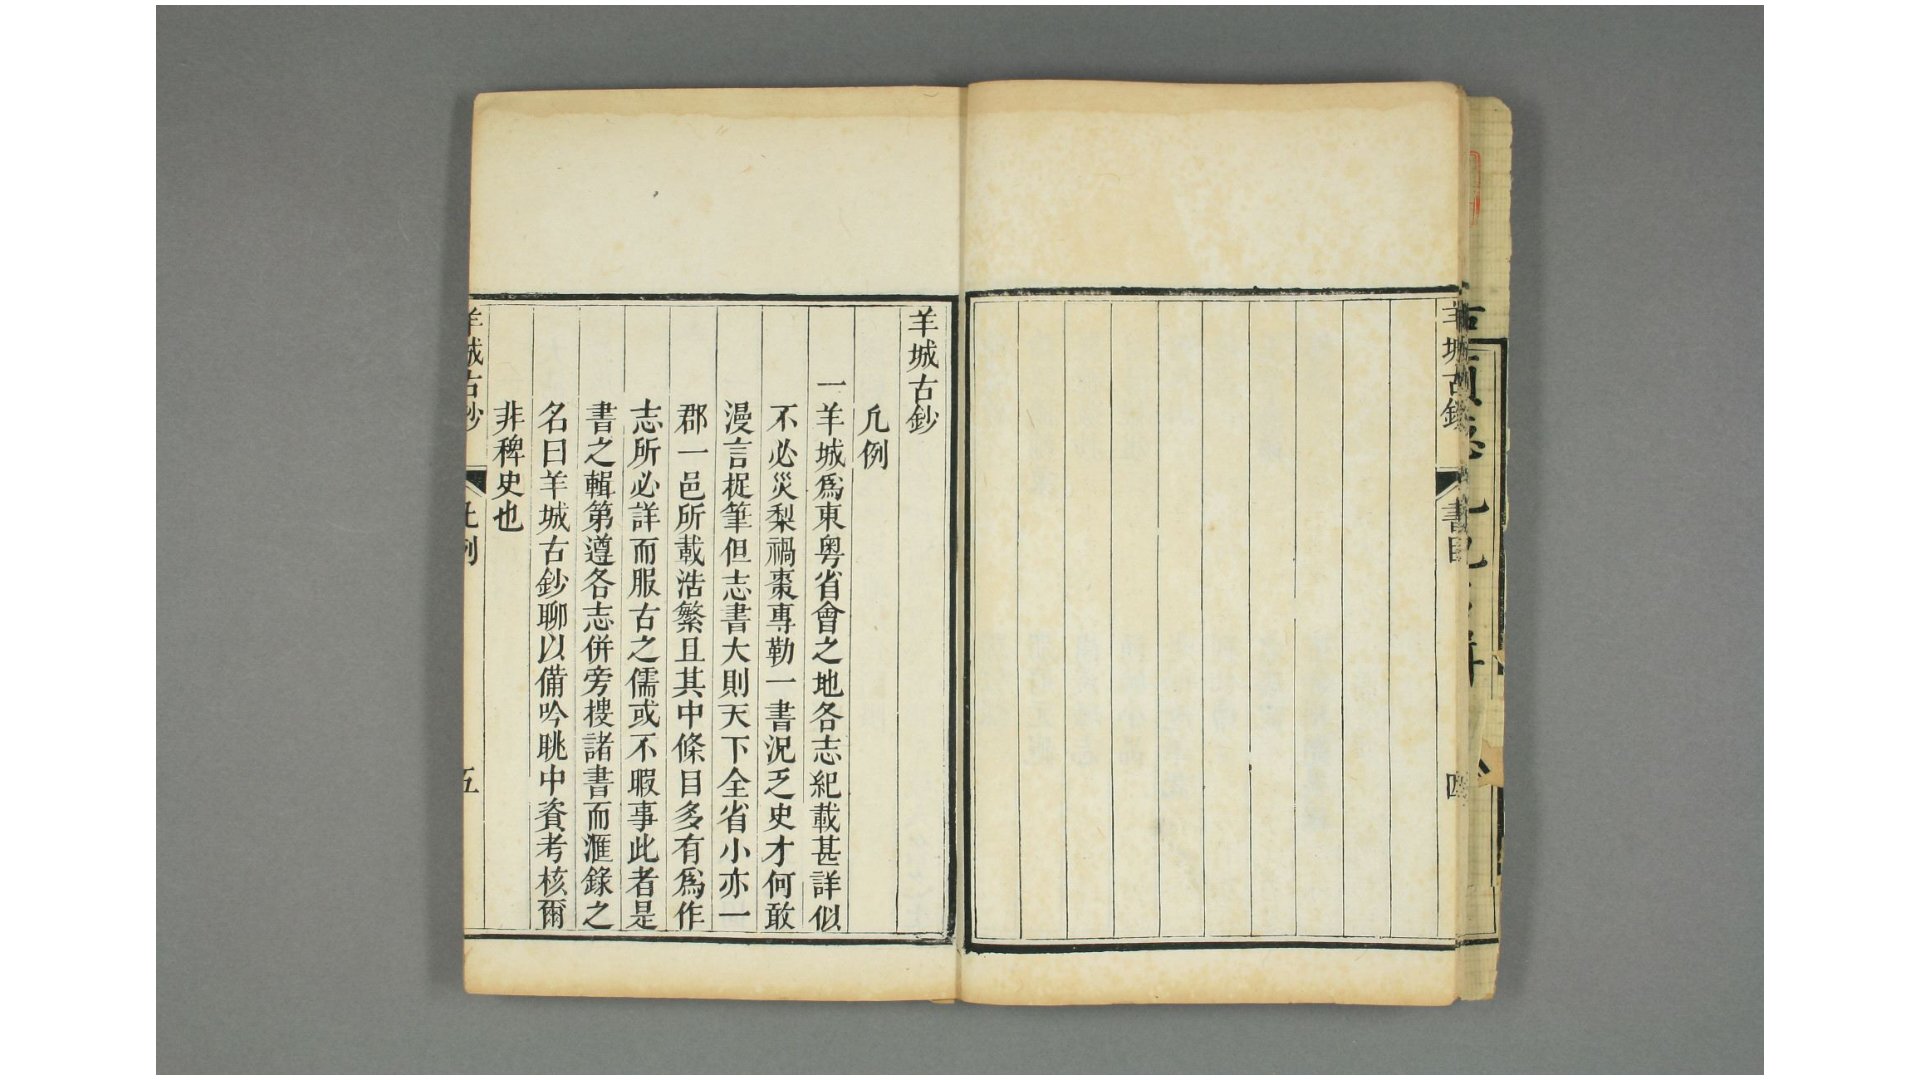 羊城古鈔
書目
四
羊城古鈔
凡例
一羊城爲東粵省會之地各志紀載甚詳似
不必災梨禍棗專勒一書況乏史才何敢
漫言捉筆但志書大則天下全省小亦一
郡一邑所載浩繁且其中條目多有爲作
志所必詳而服古之儒或不暇事此者是
書之輯第遵各志併旁摟諸書而滙錄之
名曰羊城古鈔聊以備吟眺中資考核爾
非稗史也
羊城古鈔
凡例
五